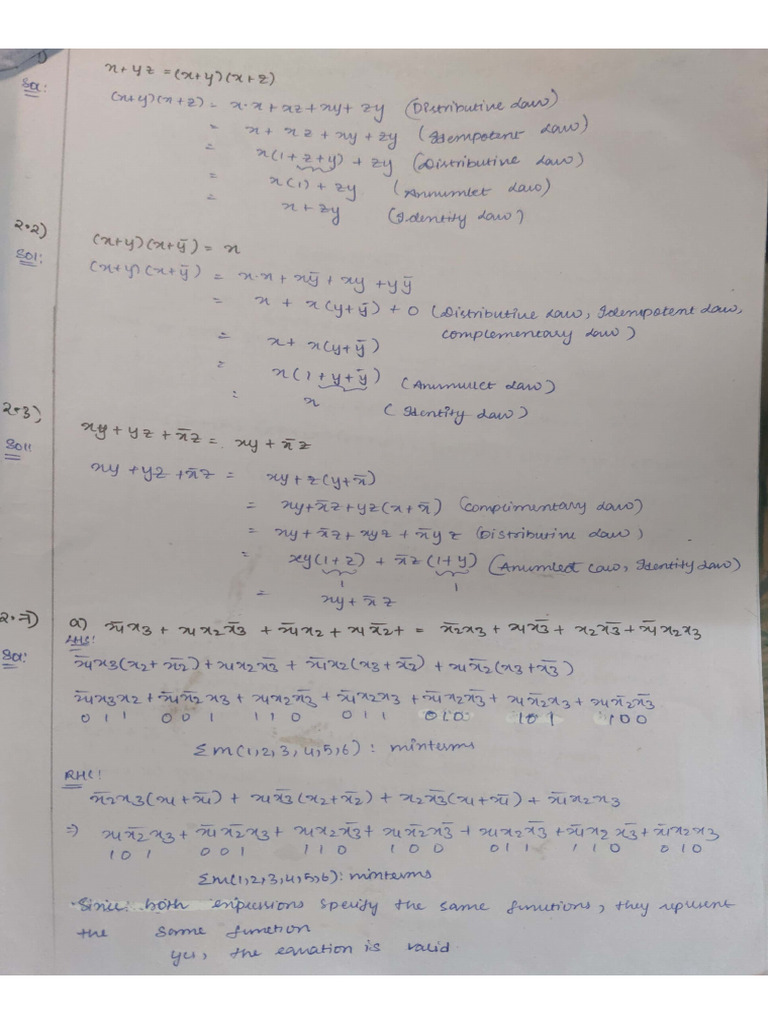 1)
x + yz = (x+y)(x+z)
Sol:
(x+y)(x+z) = x·x + xz + xy + zy (Distributive Law)
= x + xz + xy + zy (Idempotent Law)
= x(1+z+y) + zy (Distributive Law)
= x(1) + zy (Annumlet Law)
= x + zy (Identity Law)
2.2)
(x+y)(x+ȳ) = x
Sol:
(x+y)(x+ȳ) = x·x + xȳ + xy + yȳ
= x + x(y+ȳ) + 0 (Distributive Law, Idempotent Law,
complementary Law)
= x + x(y+ȳ)
= x(1+y+ȳ) (Anumullet Law)
= x (Identity Law)
2.3)
xy + yz + x̄z = xy + x̄z
Sol:
xy + yz + x̄z = xy + z(y+x̄)
= xy + x̄z + yz(x+x̄) (Complimentary Law)
= xy + x̄z + xyz + x̄yz (Distributive Law)
= xy(1+z) + x̄z(1+y) (Anumlect Law, Identity Law)
1 1
= xy + x̄z
2.7) a) x̄1x3 + x1x2x̄3 + x̄1x2 + x1x̄2+ = x̄2x3 + x1x̄3 + x2x̄3 + x̄1x2x3
Sol: LHS:
x̄1x3(x2+x̄2) + x1x2x̄3 + x̄1x2(x3+x̄2) + x1x̄2(x3+x̄3)
x̄1x3x2 + x̄1x̄2x3 + x1x2x̄3 + x̄1x2x3 + x̄1x2x̄3 + x1x̄2x3 + x1x̄2x̄3
0 1 1 0 0 1 1 1 0 0 1 1 0 1 0 1 0 1 1 0 0
Σm(1,2,3,4,5,6): minterms
RHS:
x̄2x3(x1+x̄1) + x1x̄3(x2+x̄2) + x2x̄3(x1+x̄1) + x̄1x2x3
⇒ x1x̄2x3 + x̄1x̄2x3 + x1x2x̄3 + x1x̄2x̄3 + x1x2x̄3 + x̄1x2x̄3 + x̄1x2x3
1 0 1 0 0 1 1 1 0 1 0 0 0 1 1 1 1 0 0 1 0
Σm(1,2,3,4,5,6): minterms
·Since: both expressions specify the same functions, they represent
the same function
yes, the equation is valid